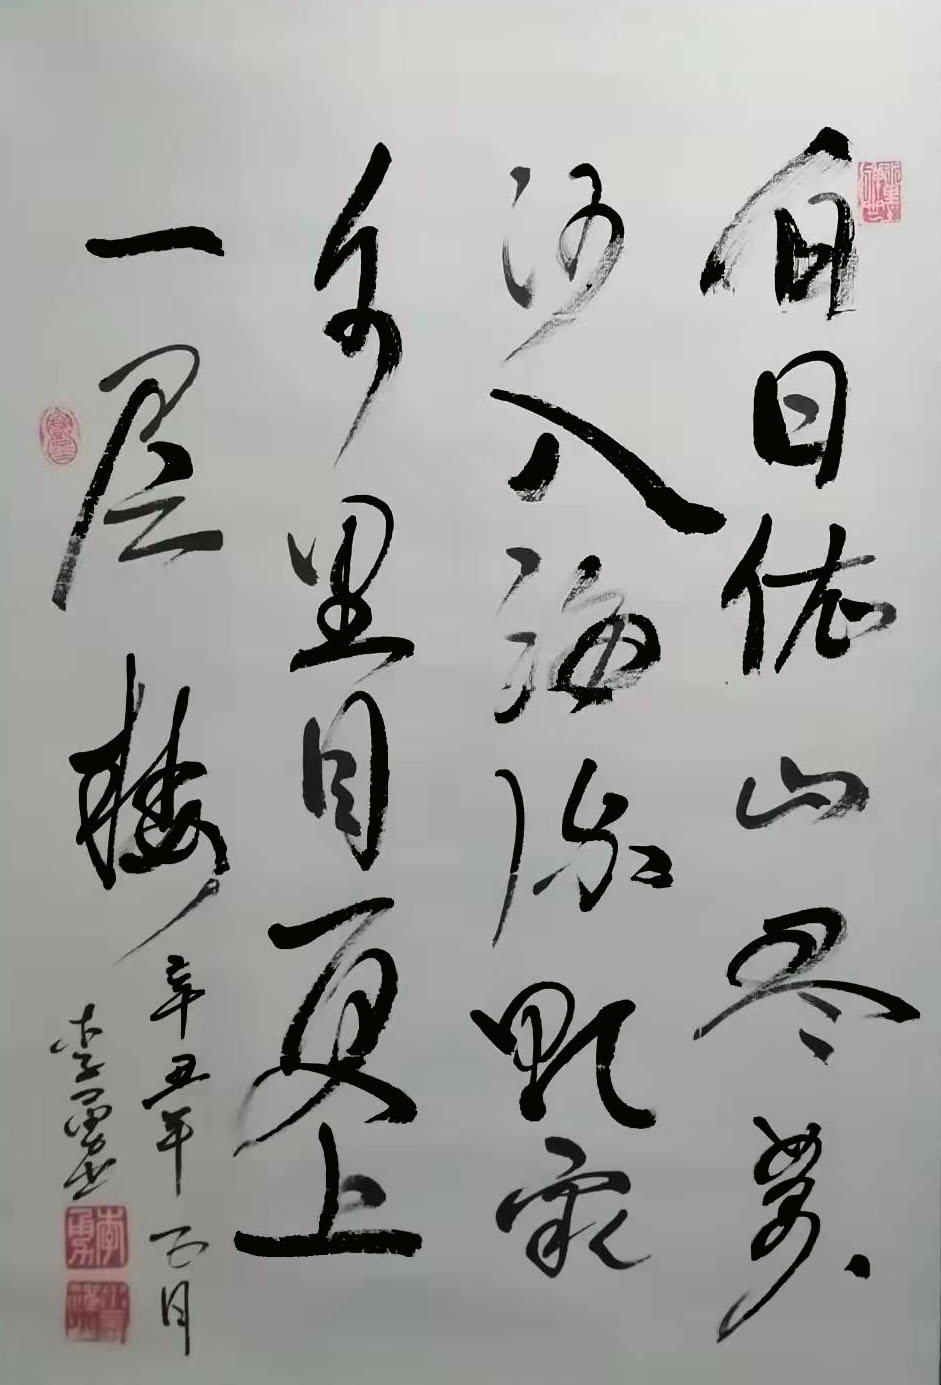 白日依山尽黄
河入海流欲穷
千里目更上
一层楼
辛丑年 月
李勇书
李勇